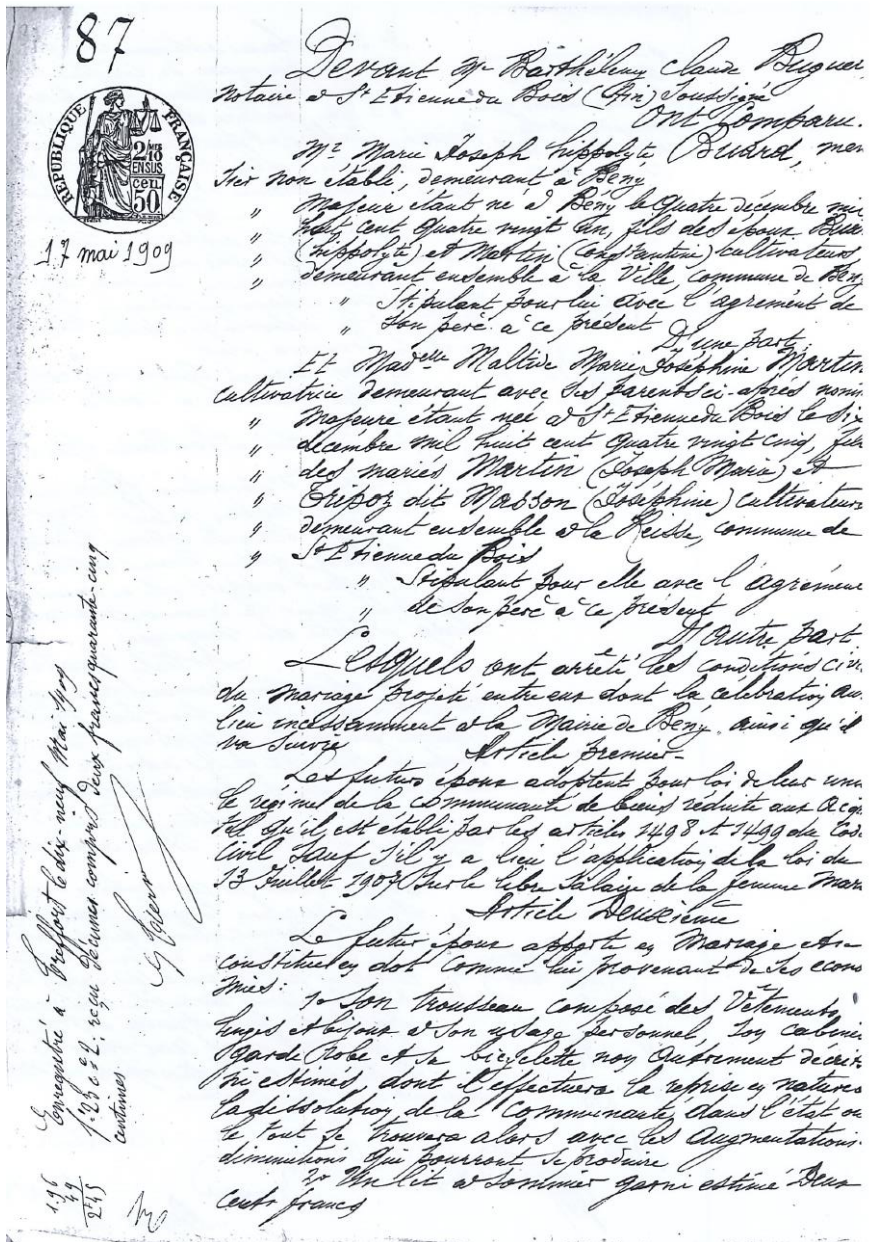 87
RÉPUBLIQUE FRANÇAISE
2/10
EN SUS
50 CEN
17 mai 1909
Devant Me Barthélemy Claude Buguet
Notaire à St Etienne du Bois (Ain) Soussigné
Ont Comparu.
Mr Marie Joseph hippolyte Buard, men
sier non établi, demeurant à Bény
" Majeur étant né à Bény le quatre décembre mil
" huit cent quatre vingt un, fils des époux Bua
" (hippolyte) et Martin (Constantine) cultivateurs
" demeurant ensemble à la Ville, commune de Bén
" Stipulant pour lui avec l'agrément de
" Son père à ce présent
D'une part
Et Madelle Maltide Marie Joséphine Martin
cultivatrice demeurant avec ses parents ci-après nom
" Majeure étant née à St Etienne du Bois le six
" décembre mil huit cent quatre vingt cinq, fill
" des mariés Martin (Joseph Marie) et
" Tripoz dit Masson (Joséphine) cultivateurs
" demeurant ensemble à la Reisse, commune de
" St Etienne du Bois
" Stipulant pour elle avec l'agrémen
" de Son père à ce présent
D'autre part
Lesquels ont arrêté les conditions civi
du mariage projeté entre eux dont la célébration au
lieu incessamment à la Mairie de Bény ainsi qu'il
va suivre
Article premier-
Les futurs époux adoptent pour loi de leur uni
le régime de la communauté de biens réduite aux acq
tel qu'il est établi par les articles 1498 et 1499 du Cod
civil sauf s'il y a lieu l'application de la loi du
13 Juillet 1907 Sur le libre Salaire de la femme Mari
Article Deuxième
Le futur époux apporte en Mariage et se
constitue en dot comme lui provenant de ses écono
mies:
1o Son trousseau composé des Vêtements
linges et bijoux à son usage personnel, son cabine
garde Robe et sa bicyclette non autrement décrits
ni estimés, dont il effectuera la reprise en nature
la dissolution de la communauté, dans l'état ou
le tout se trouvera alors avec les augmentations
diminutions qui pourront se produire
2o Un lit à sommier garni estimé Deux
Cents francs
Enregistré à Treffort le dix-neuf Mai 1909
fo 23 c 2. reçu décimes compris deux francs quarante-cinq
centimes.
196
49
2f45